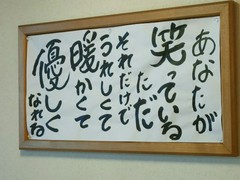 あなたが
笑っている
ただ
それだけで
うれしくて
暖かくて
優しく
なれる